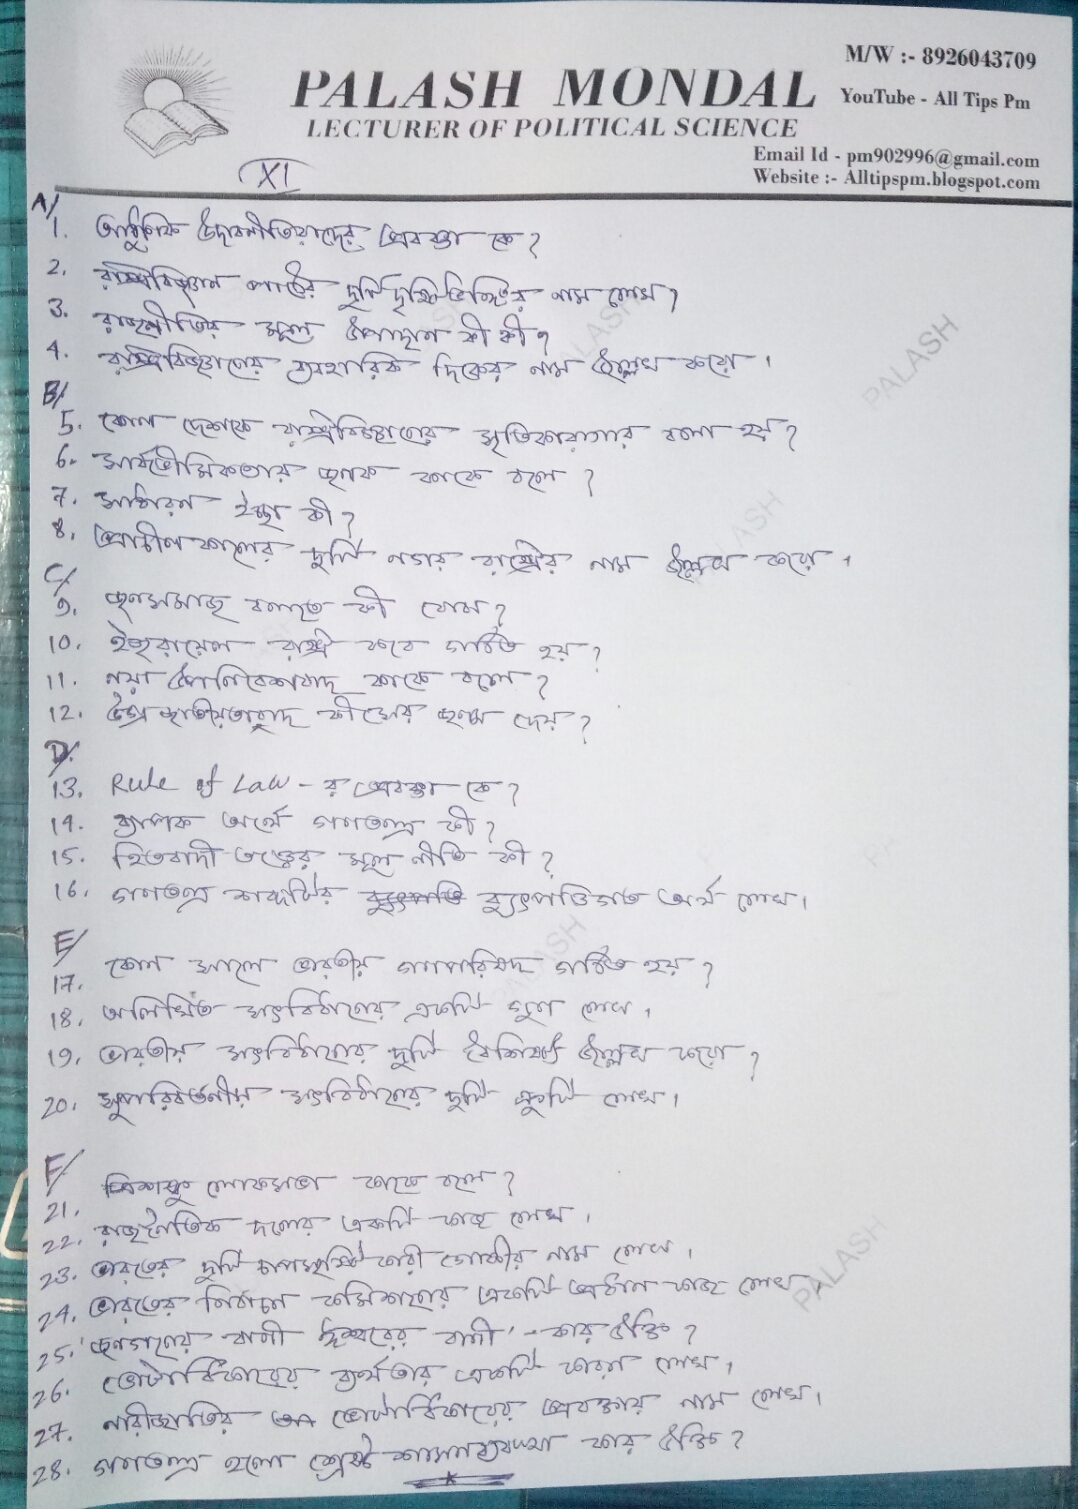 M/W :- 8926043709
PALASH MONDAL
YouTube - All Tips Pm
LECTURER OF POLITICAL SCIENCE
Email Id - pm902996@gmail.com
Website :- Alltipspm.blogspot.com
XI
A/
1. আধুনিক উদারনীতিবাদের প্রবক্তা কে?
2. রাষ্ট্রবিজ্ঞান পাঠের দুটি দৃষ্টিভঙ্গির নাম লেখ?
3. রাজনীতির মূল উপাদান কী কী?
4. রাষ্ট্রবিজ্ঞানের ব্যবহারিক দিকের নাম উল্লেখ করো।
B/
5. কোন দেশকে রাষ্ট্রবিজ্ঞানের সূতিকাগার বলা হয়?
6. সার্বভৌমিকতার জনক কাকে বলে?
7. সাধারন ইচ্ছা কী?
8. প্রাচীনকালের দুটি নগর রাষ্ট্রের নাম উল্লেখ করো।
C/
9. জনসমাজ বলতে কী বোঝ?
10. ইজরায়েল রাষ্ট্র কবে গঠিত হয়?
11. নয়া উপনিবেশবাদ কাকে বলে?
12. উগ্র জাতীয়তাবাদ কীসের জন্ম দেয়?
D/
13. Rule of Law - র প্রবক্তা কে?
14. ব্যাপক অর্থে গণতন্ত্র কী?
15. হিতবাদী তত্ত্বের মূল নীতি কী?
16. গণতন্ত্র শব্দটির ব্যুৎপত্তিগত অর্থ লেখ।
E/
17. কোন সালে ভারতীয় গণপরিষদ গঠিত হয়?
18. অলিখিত সংবিধানের একটি গুণ লেখ।
19. ভারতীয় সংবিধানের দুটি বৈশিষ্ট্য উল্লেখ করো?
20. সুপরিবর্তনীয় সংবিধানের দুটি ত্রুটি লেখ।
F/
21. ত্রিশঙ্কু লোকসভা কাকে বলে?
22. রাজনৈতিক দলের একটি কাজ লেখ।
23. ভারতের দুটি চাপসৃষ্টিকারী গোষ্ঠীর নাম লেখ।
24. ভারতের নির্বাচন কমিশনের একটি প্রধান কাজ লেখ।
25. 'জনগণের বাণী ঈশ্বরের বাণী' - কার উক্তি?
26. ভোটাধিকারের ব্যর্থতার একটি কারণ লেখ।
27. নারীজাতির ভোটাধিকারের প্রবক্তার নাম লেখ।
28. গণতন্ত্র হলো শ্রেষ্ঠ শাসনব্যবস্থা কার উক্তি?
PALASH
PALASH
PALASH
PALASH
PALASH